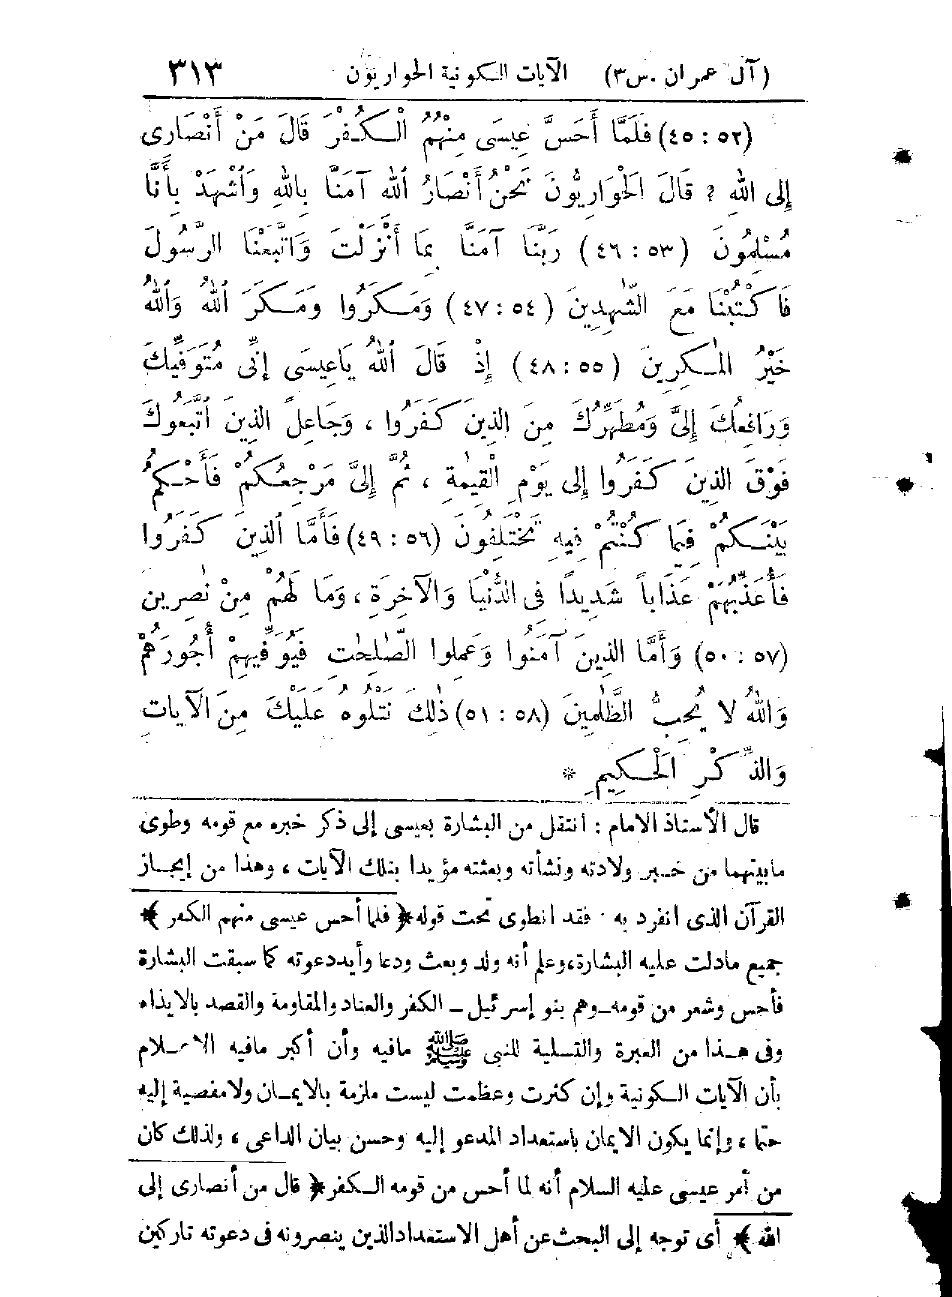 (آل عمران .س٣) الآيات الكونية الحواريون ٣١٣
(٥٢ : ٤٥) فَلَمَّا أَحَسَّ عِيسَى مِنْهُمُ الْكُفْرَ قَالَ مَنْ أَنْصَارِى
إِلى اللهِ ؟ قَالَ الْحَوَارِيُّونَ نَحْنُ أَنْصَارُ اللهِ آمَنَّا بِاللهِ وَاشْهَدْ بِأَنَّا
مُسْلِمُونَ (٥٣ : ٤٦) رَبَّنَا آمَنَّا بِمَا أَنْزَلْتَ وَاتَّبَعْنَا الرَّسُولَ
فَاكْتُبْنَا مَعَ الشَّٰهِدِينَ (٥٤ : ٤٧) وَمَكَرُوا وَمَكَرَ اللهُ وَاللهُ
خَيْرُ الْمَٰكِرِينَ (٥٥ : ٤٨) إِذْ قَالَ اللهُ يَاعِيسَى إِنِّى مُتَوَفِّيكَ
وَرَافِعُكَ إِلَىَّ وَمُطَهِّرُكَ مِنَ الذِينَ كَفَرُوا ، وَجَاعِلُ الذِينَ اتَّبَعُوكَ
فَوْقَ الذِينَ كَفَرُوا إِلى يَوْمِ الْقِيٰمَةِ ، ثُمَّ إِلَىَّ مَرْجِعُكُمْ فَأَحْكُمُ
بَيْنَكُمْ فِيمَا كُنْتُمْ فِيهِ تَخْتَلِفُونَ (٥٦ : ٤٩) فَأَمَّا الذِينَ كَفَرُوا
فَأُعَذِّبُهُمْ عَذَاباً شَدِيدًا فى الدُّنْيَا وَالْآخِرَةِ ، وَمَا لَهُمْ مِنْ نٰصِرِين
(٥٧ : ٥٠) وَأَمَّا الذِينَ آمَنُوا وَعَمِلوا الصَّٰلِحٰتِ فَيُوَفِّيهِمْ أُجُورَهُمْ
وَاللهُ لا يُحِبُّ الظَّٰلِمِينَ (٥٨ : ٥١) ذٰلِكَ نَتْلُوهُ عَلَيْكَ مِنَ الْآيَاتِ
وَالذِّكْرِ الْحَكِيمِ *
قال الأستاذ الامام : انتقل من البشارة بعيسى إلى ذكر خبره مع قومه وطوى
مابينهما من خبر ولادته ونشأته وبعثته مؤيدا بتلك الآيات ، وهذا من إيجاز
القرآن الذى انفرد به . فقد انطوى تحت قوله ﴿ فلما أحس عيسى منهم الكفر ﴾
جميع مادلت عليه البشارة،وعلم أنه ولد وبعث ودعا وأيد دعوته كما سبقت البشارة
فأحس وشعر من قومه ـ وهم بنو إسرئيل ـ الكفر والعناد والمقاومة والقصد بالايذاء
وفى هذا من العبرة والتسلية للنبى ﷺ مافيه وأن أكبر مافيه الاعلام
بأن الآيات الكونية وإن كثرت وعظمت ليست ملزمة بالايمان ولا مفضية إليه
حتما ، وإنما يكون الايمان باستعداد المدعو إليه وحسن بيان الداعى ، ولذلك كان
من أمر عيسى عليه السلام أنه لما أحس من قومه الكفر ﴿ قال من أنصارى إلى
الله ﴾ أى توجه إلى البحث عن أهل الاستعداد الذين ينصرونه فى دعوته تاركين